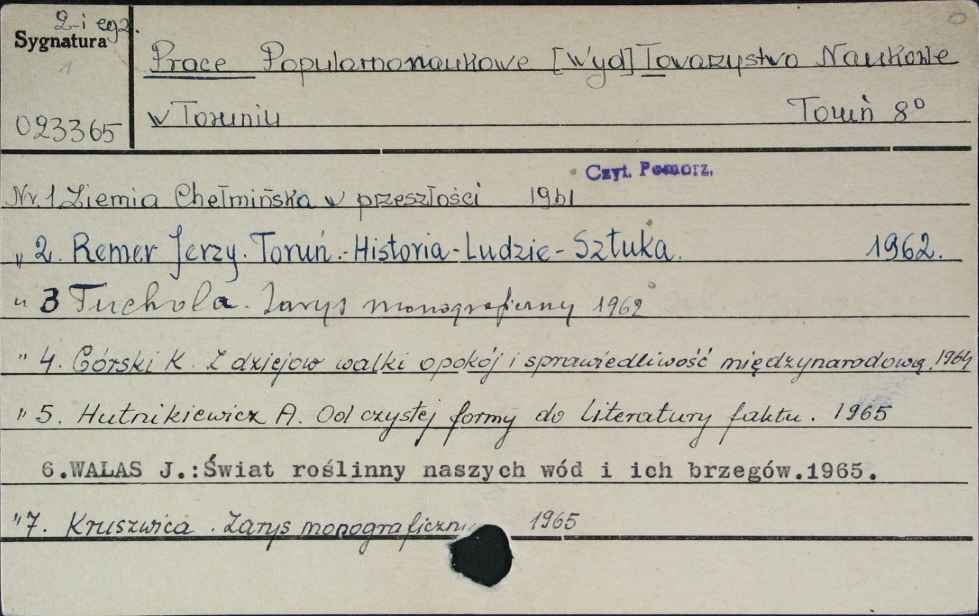 2-i egz.
Sygnatura
1
023365
Prace Popularnonaukowe [Wyd] Towarzystwo Naukowe
w Toruniu Toruń 8°
Czyt. Pomorz.
Nr. 1 Ziemia Chełmińska w przeszłości 1961
" 2. Remer Jerzy. Toruń.-Historia-Ludzie-Sztuka. 1962.
" 3 Tuchola. Zarys monograficzny 1962
" 4. Górski K. Z dziejow walki o pokój i sprawiedliwość międzynarodową. 1964
" 5. Hutnikiewicz A. Od czystej formy do literatury faktu. 1965
6.WALAS J.:Świat roślinny naszych wód i ich brzegów.1965.
" 7. Kruszwica. Zarys monograficzny 1965